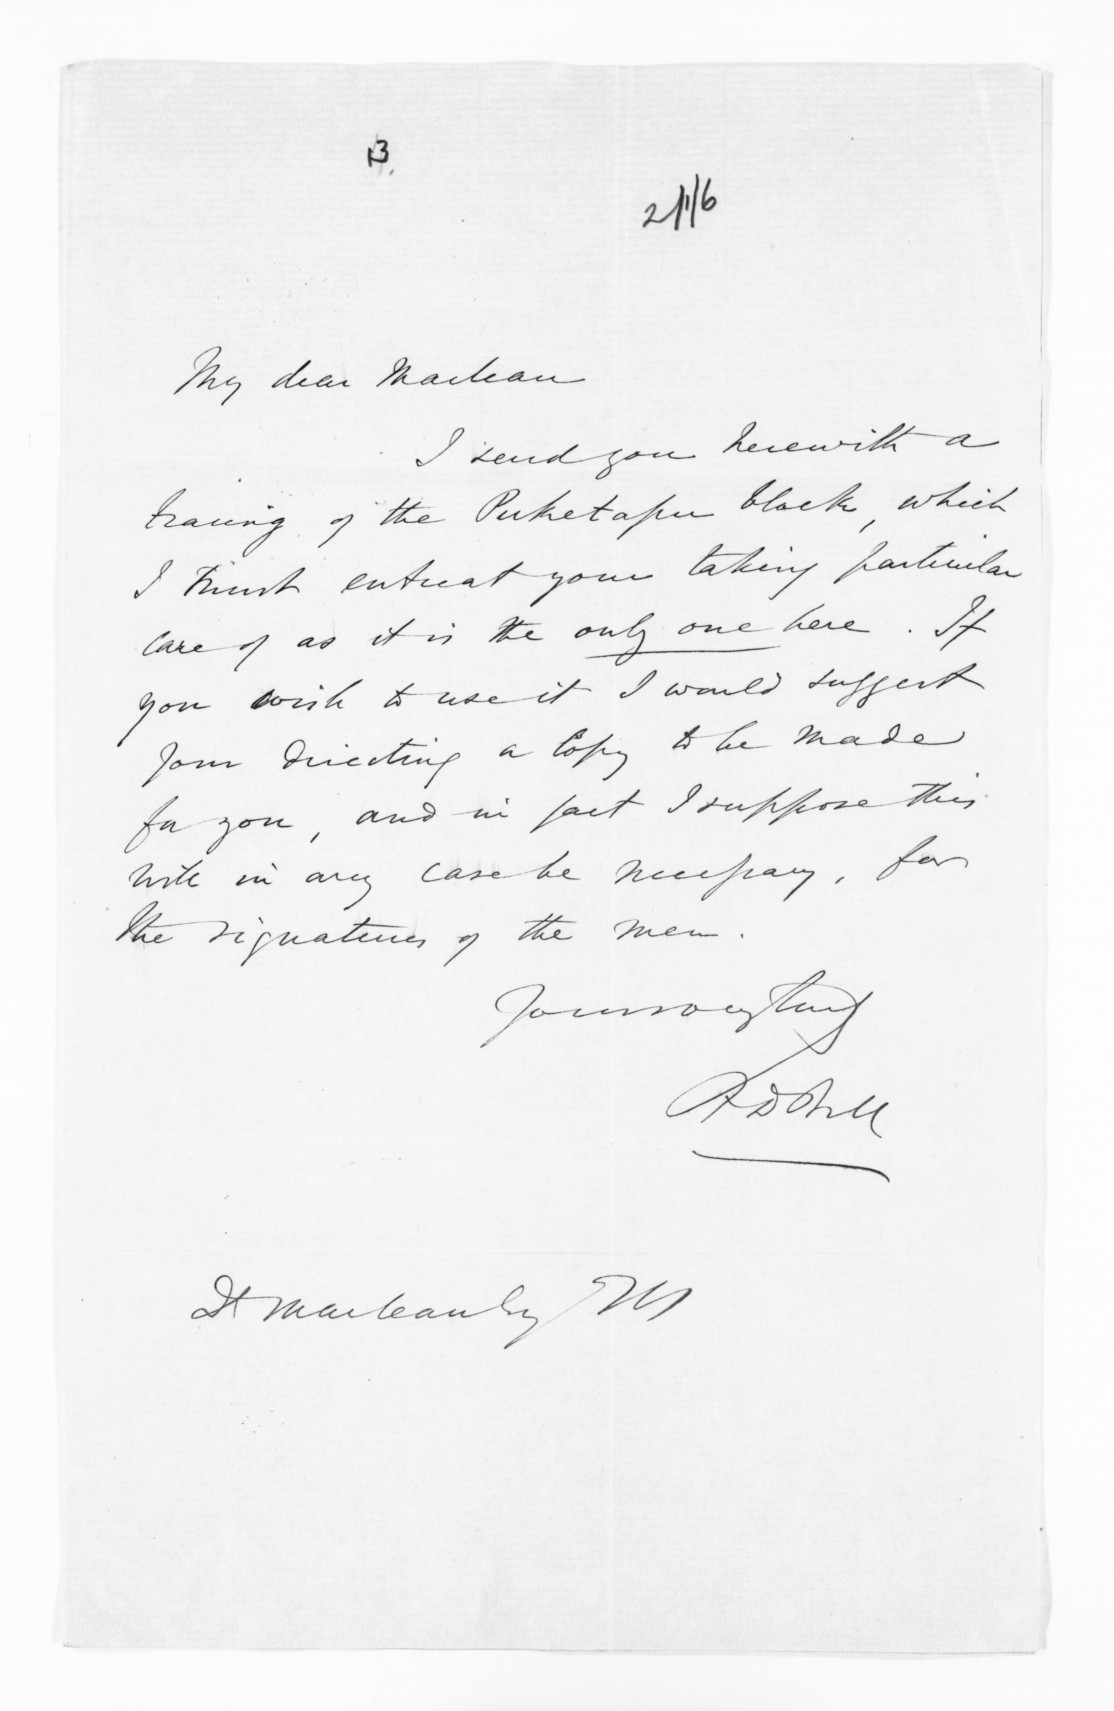 13.
2/11/6
My dear Maclean
I send you herewith a
tracing of the Puketapu block, which
I must entreat your taking particular
care of as it is the only one here. If
you wish to use it I would suggest
your directing a Copy to be made
for you, and in fact I suppose this
will in any case be necessary, for
the signatures of the men.
Yours very truly
F D Bell
Maclean Esq